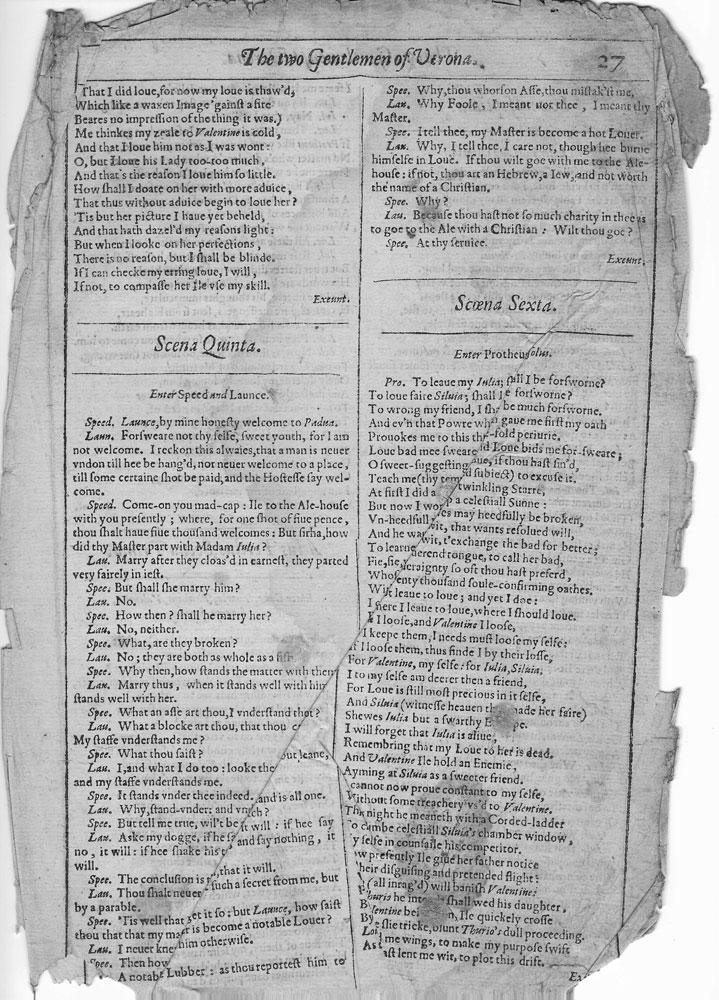 The two Gentlemen of Verona.
27
That I did loue, for now my loue is thaw'd,
Which like a waxen Image 'gainst a fire
Beares no impression of the thing it was.)
Me thinkes my zeale to Valentine is cold,
And that I loue him not as I was wont:
O, but I loue his Lady too-too much,
And that's the reason I loue him so little.
How shall I doate on her with more aduice,
That thus without aduice begin to loue her?
'Tis but her picture I haue yet beheld,
And that hath dazel'd my reasons light:
But when I looke on her perfections,
There is no reason, but I shall be blinde.
If I can checke my erring loue, I will,
If not, to compasse her Ile vse my skill.
Exeunt.
Scena Quinta.
Enter Speed and Launce.
Speed. Launce, by mine honesty welcome to Padua.
Laun. Forsweare not thy selfe, sweet youth, for I am
not welcome. I reckon this alwaies, that a man is neuer
vndon till hee be hang'd, nor neuer welcome to a place,
till some certaine shot be paid, and the Hostesse say wel-
come.
Speed. Come-on you mad-cap: Ile to the Ale-house
with you presently; where, for one shot of fiue pence,
thou shalt haue fiue thousand welcomes: But sirha, how
did thy Master part with Madam Iulia?
Lau. Marry after they cloas'd in earnest, they parted
very fairely in iest.
Spee. But shall she marry him?
Lau. No.
Spee. How then? shall he marry her?
Lau. No, neither.
Spee. What, are they broken?
Lau. No; they are both as whole as a fish
Spee. Why then, how stands the matter with them
Lau. Marry thus, when it stands well with him
stands well with her.
Spee. What an asse art thou, I vnderstand thot?
Lau. What a blocke art thou, that thou c
My staffe vnderstands me?
Spee. What thou saist?
Lau. I, and what I do too: looke the but leane,
and my staffe vnderstands me.
Spee. It stands vnder thee indeed.
Lau. Why, stand-vnder: and vn and is all one.
Spee. But tell me true, wil't be ch?
Lau. Aske my dogge, if he s it will: if hee say
no, it will: if hee shake his t and say nothing, it
will.
Spee. The conclusion is that it will.
Lau. Thou shalt neuer such a secret from me, but
by a parable.
Spee. 'Tis well that get it so: but Launce, how saist
thou that that my mas r is become a notable Louer?
Lau. I neuer kne him otherwise.
Spee. Then how
A notable Lubber: as thou reportest him to
Spee. Why, thou whorson Asse, thou mistak'st me,
Lau. Why Foole, I meant not thee, I meant thy
Master.
Spee. I tell thee, my Master is become a hot Louer.
Lau. Why, I tell thee, I care not, though hee burne
himselfe in Loue. If thou wilt goe with me to the Ale-
house: if not, thou art an Hebrew, a Iew, and not worth
the name of a Christian.
Spee. Why?
Lau. Because thou hast not so much charity in thee as
to goe to the Ale with a Christian: Wilt thou goe?
Spee. At thy seruice.
Exeunt.
Scœna Sexta.
Enter Protheus solus.
Pro. To leaue my Iulia; shall I be forsworne?
To loue faire Siluia; shall I e forsworne?
To wrong my friend, I sh be much forsworne.
And ev'n that Powre wh gaue me first my oath
Prouokes me to this thr -fold periurie.
Loue bad mee sweare d Loue bids me for-sweare;
O sweet-suggesting oue, if thou hast sin'd,
Teach me (thy tem d subiect) to excuse it.
At first I did a twinkling Starre,
But now I wor p a celestiall Sunne:
Vn-heedfull es may heedfully be broken,
And he wan it, that wants resolued will,
To learne wit, t'exchange the bad for better;
Fie, fie, erend tongue, to call her bad,
Whose eraignty so oft thou hast preferd,
Wi enty thousand soule-confirming oathes.
I leaue to loue; and yet I doe:
B here I leaue to loue, where I should loue.
I loose, and Valentine I loose,
I keepe them, I needs must loose my selfe:
If I loose them, thus finde I by their losse,
For Valentine, my selfe: for Iulia, Siluia.
I to my selfe am deerer then a friend,
For Loue is still most precious in it selfe,
And Siluia (witnesse heauen th made her faire)
Shewes Iulia but a swarthy E pe.
I will forget that Iulia is aliue,
Remembring that my Loue to her is dead.
And Valentine Ile hold an Enemie,
Ayming at Siluia as a sweeter friend.
cannot now proue constant to my selfe,
Without some treachery vs'd to Valentine.
This night he meaneth with a Corded-ladder
To climbe celestiall Siluia's chamber window,
y selfe in counsaile his competitor.
w presently Ile giue her father notice
heir disguising and pretended flight:
(all inrag'd) will banish Valentine:
hurio he inte shall wed his daughter,
B lentine bei n, Ile quickly crosse
By slie tricke, blunt Thurio's dull proceeding.
Lo me wings, to make my purpose swift
As ast lent me wit, to plot this drift.
Ex